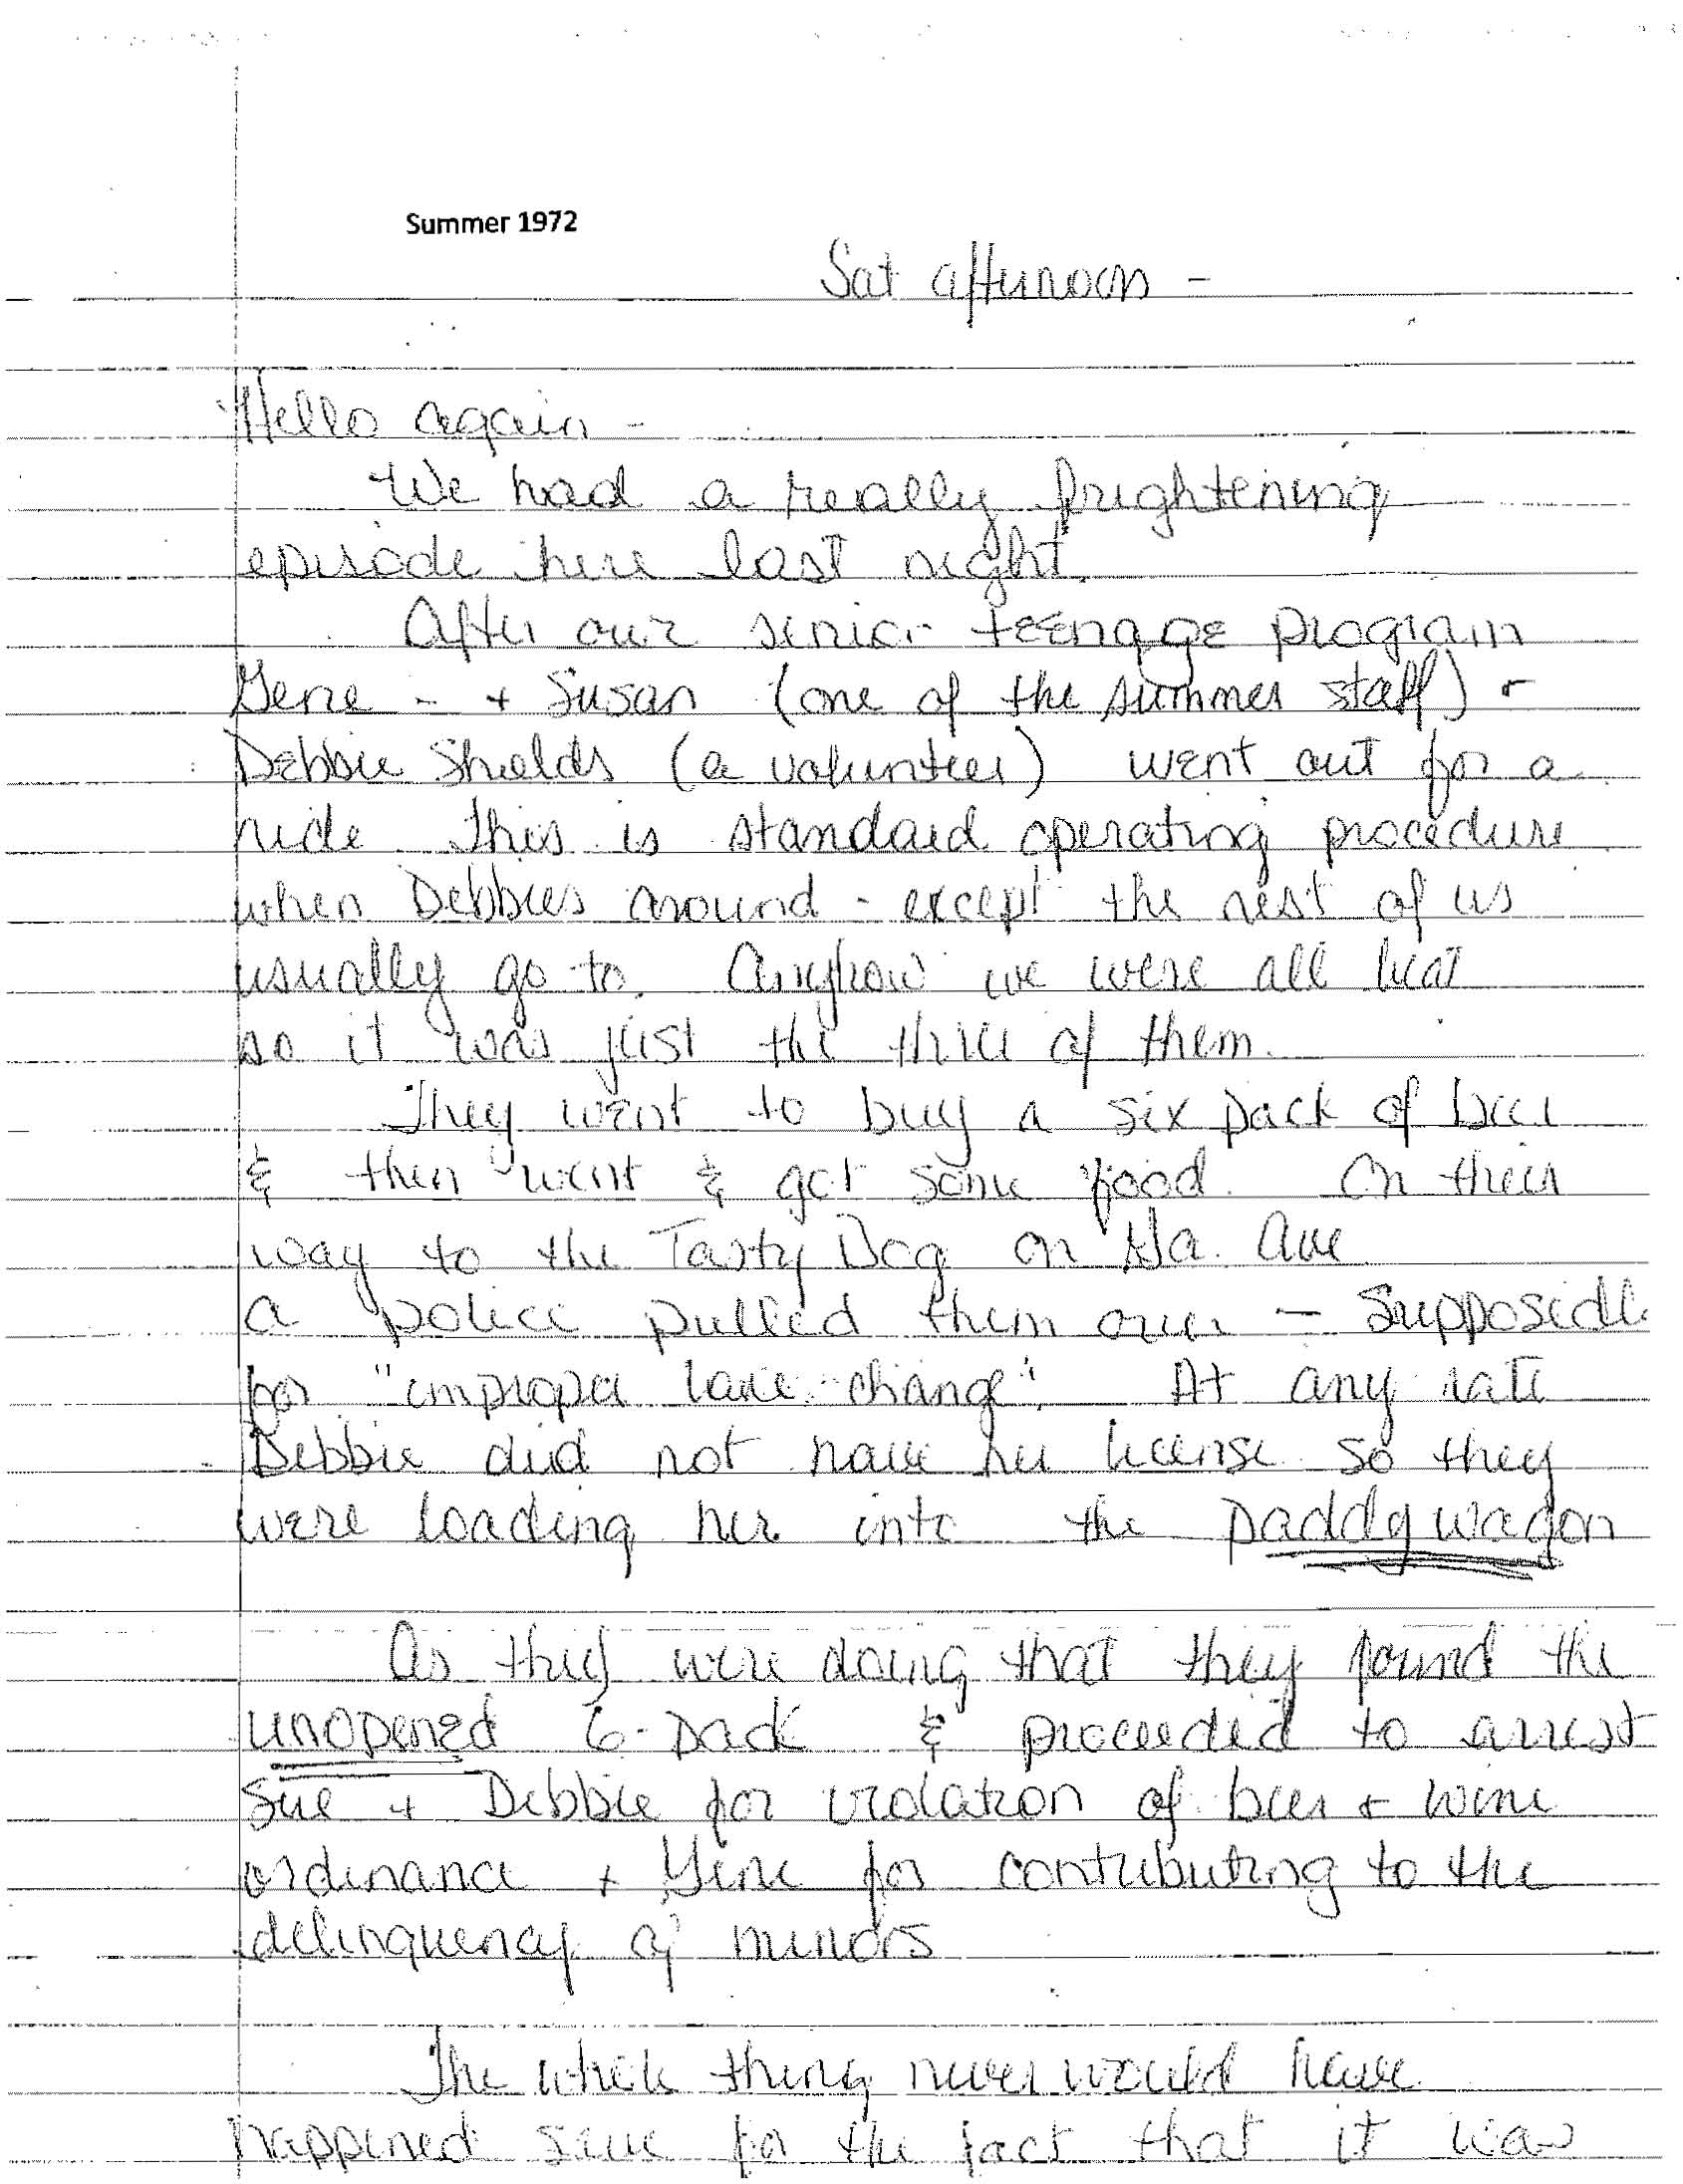 Summer 1972
Sat afternoon -
Hello again -
We had a really frightening
episode here last night.
After our senior teenage program
Gene - + Susan (one of the summer staff) +
Debbie Shields (a volunteer) went out for a
ride. This is standard operating procedure
when Debbies around - except the rest of us
usually go to. Anyhow we were all beat
so it was just the three of them.
They went to buy a six pack of beer
& then went & got some food. On their
way to the Tasty Dog on Ga. Ave
a police pulled them over - Supposedl
for "improper lane-change". At any rate
Debbie did not have her license so they
were loading her into the paddy wagon
As they were doing that they found the
unopened 6-pack & proceeded to arrest
Sue + Debbie for violation of beer + wine
ordinance + Gene for contributing to the
delinquency of minors
The whole thing never would have
happened save for the fact that it was